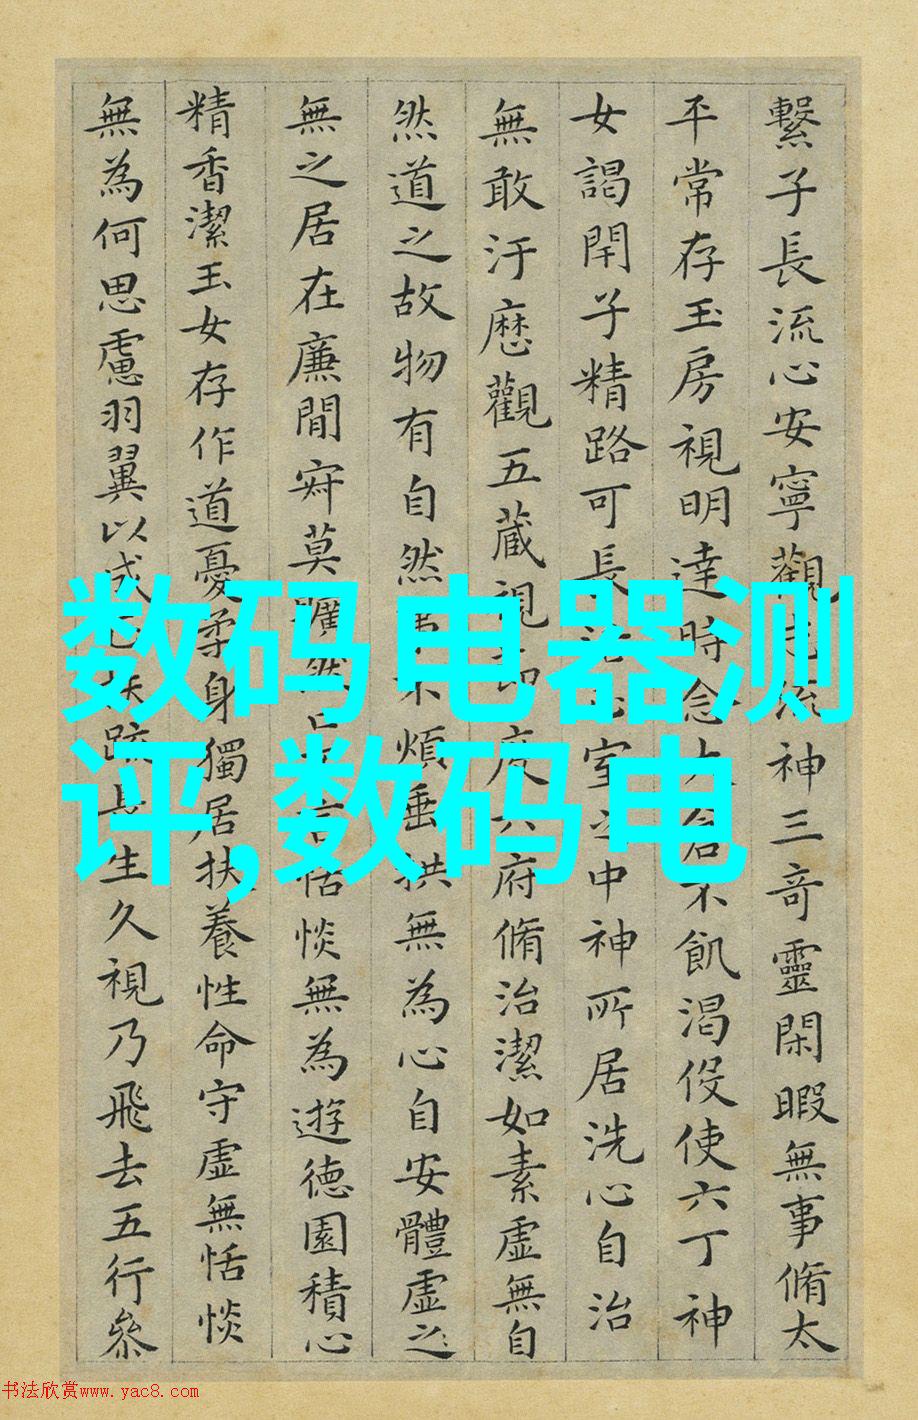 繫子長流心安寧觀志流神三竒靈閑暇無事脩太
平常存玉房視明達時念大倉不飢渴伇使六丁神
女謁閇子精路可長室之中神所居洗心自治
無敢汙歷觀五藏視節度六府脩治潔如素虛無自
然道之故物有自然事不煩垂拱無為心自安體虛之
無之居在廉間寂莫曠然言恬惔無為遊德園積心
精香潔玉女存作道憂柔身獨居扶養性命守虛無恬惔
無為何思慮羽翼以成疏長生久視乃飛去五行參
数码电器测
评,数码电
书法欣赏www.yac8.com